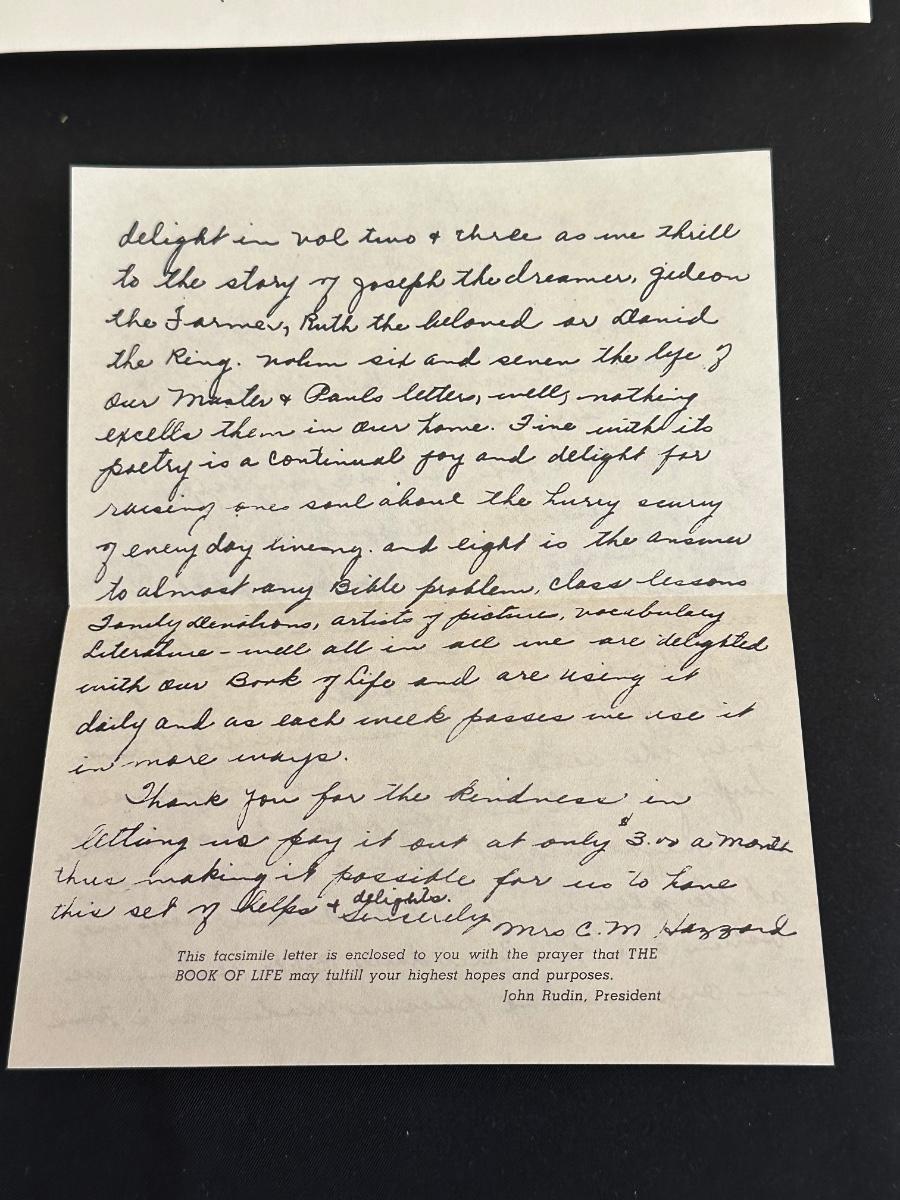 delight in vol two & three as we thrill
to the story of Joseph the dreamer, Gideon
the Farmer, Ruth the beloved or David
the King. Volum six and seven the life of
Our Master & Pauls letters, well, nothing
excells them in our home. Five with its
poetry is a continual joy and delight for
raising ones soul above the hurry scurry
of every day living. and eight is the answer
to almost any Bible problem, class lessons
Family Devotions, artists of pictures, vocabulary
Literature - well all in all we are delighted
with our Book of Life and are using it
daily and as each week passes we use it
in more ways.
Thank you for the kindness in
letting us pay it out at only $3.00 a month
thus making it possible for us to have
this set of helps & delights.
Sincerely Mrs C. M. Hazzard
This facsimile letter is enclosed to you with the prayer that THE
BOOK OF LIFE may fulfill your highest hopes and purposes.
John Rudin, President